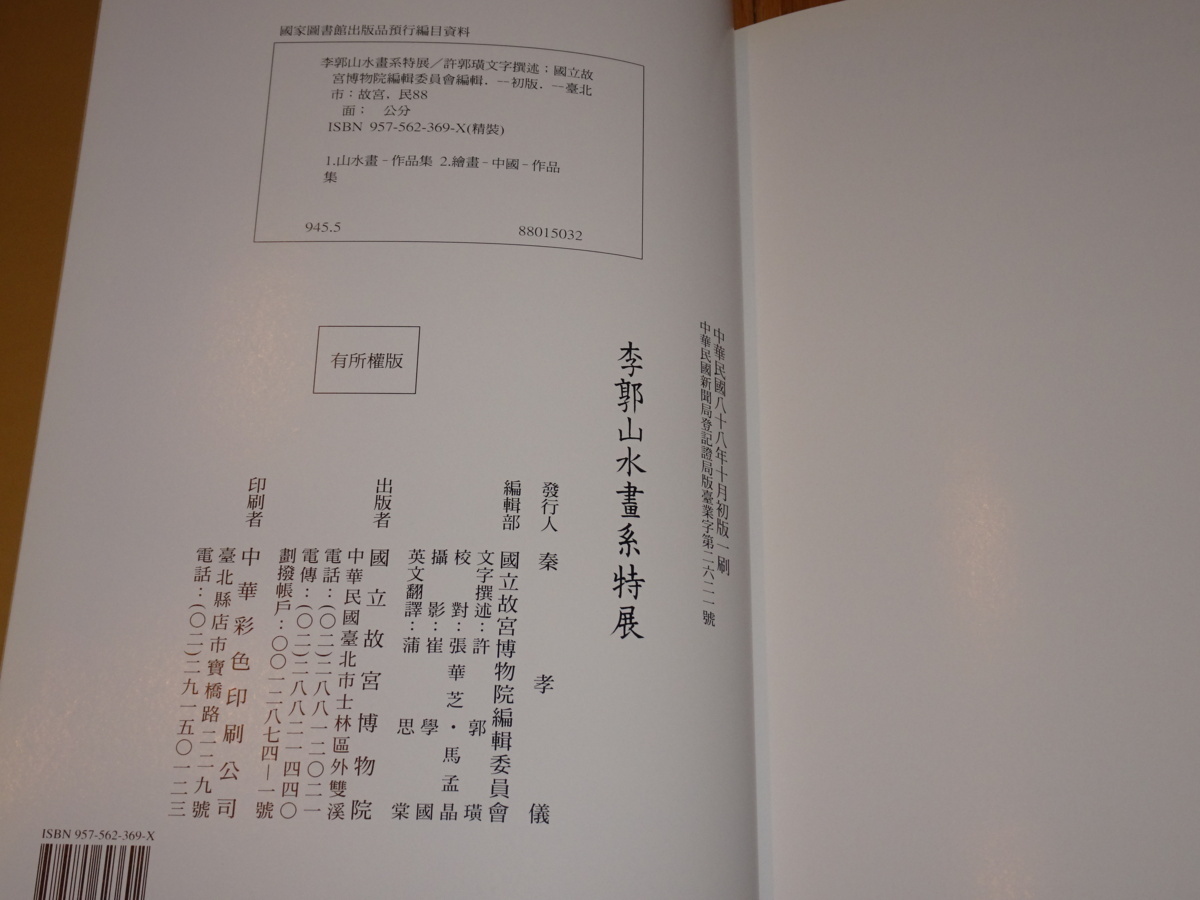 國家圖書館出版品預行編目資料
李郭山水畫系特展／許郭璜文字撰述；國立故
宮博物院編輯委員會編輯．—初版．—臺北
市：故宮，民88
面；　公分
ISBN 957-562-369-X(精裝)
1.山水畫－作品集 2.繪畫－中國－作品
集
945.5
88015032
有所權版
中華民國八十八年十月初版一刷
中華民國新聞局登記證局版臺業字第二六二一號
李郭山水畫系特展
發行人　秦孝儀
編輯部　國立故宮博物院編輯委員會
文字撰述：許郭璜
校對：張華芝・馬孟晶
攝影：崔學國
英文翻譯：蒲思棠
出版者　國立故宮博物院
中華民國臺北市士林區外雙溪
電話：(〇二)二八八一二〇二一
電傳：(〇二)二八八二一四四〇
劃撥帳戶：〇〇一二八七四—一號
印刷者　中華彩色印刷公司
臺北縣店市寶橋路二二九號
電話：(〇二)二九一五〇一二三
ISBN 957-562-369-X